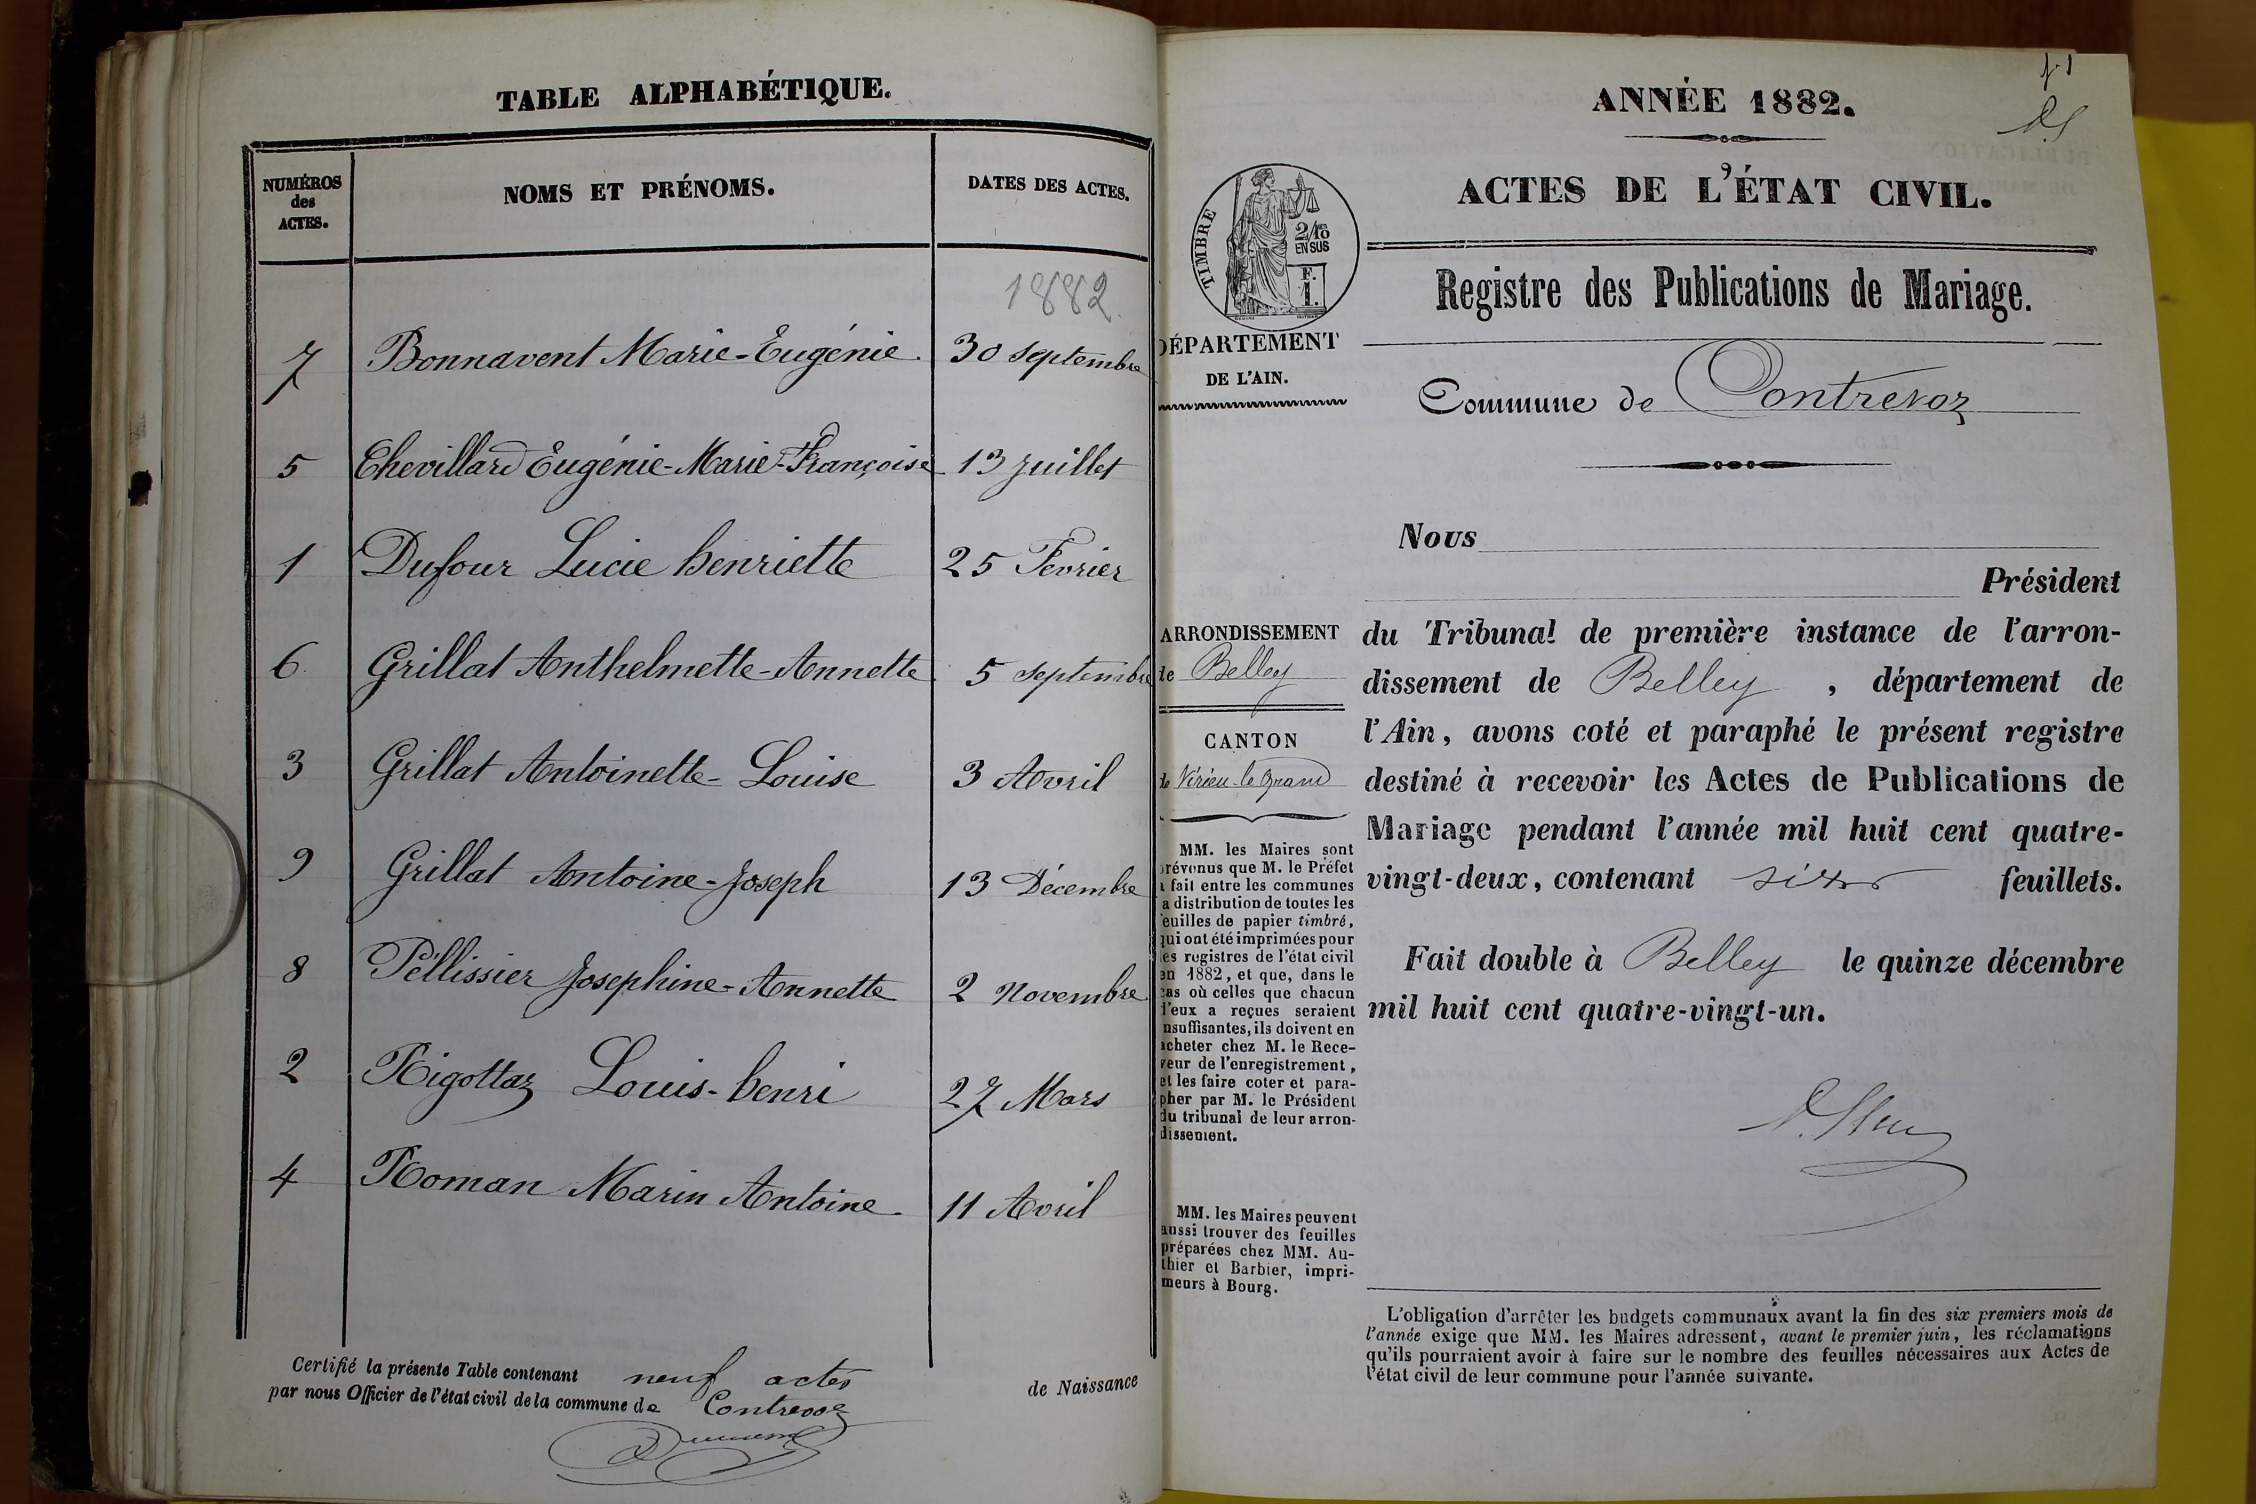 TABLE ALPHABÉTIQUE.
NUMÉROS
des
ACTES.
NOMS ET PRÉNOMS.
DATES DES ACTES.
1882.
7 Bonnavent Marie-Eugénie. 30 septembre
5 Chevillard Eugénie-Marie-Françoise 13 Juillet
1 Dufour Lucie henriette 25 Fevrier
6. Grillat Anthelmette-Annette. 5 septembre
3 Grillat Antoinette-Louise 3 Avril
9 Grillat Antoine-Joseph 13 Décembre
8 Péllissier Josephine-Annette 2 Novembre
2 Rigottaz Louis-henri 27 Mars
4 Roman Marin Antoine. 11 Avril
Certifié la présente Table contenant neuf actes de Naissance
par nous Officier de l'état civil de la commune de Contrevoz
ANNÉE 1882.
ACTES DE L'ÉTAT CIVIL.
TIMBRE
2/10es
EN SUS
F.
1.
Registre des Publications de Mariage.
DÉPARTEMENT
DE L'AIN.
Commune de Contrevoz
ARRONDISSEMENT
de Belley
CANTON
de Virieu-le-Grand
MM. les Maires sont
prévenus que M. le Préfet
a fait entre les communes
la distribution de toutes les
feuilles de papier timbré,
qui ont été imprimées pour
les registres de l'état civil
en 1882, et que, dans le
cas où celles que chacun
d'eux a reçues seraient
insuffisantes, ils doivent en
acheter chez M. le Rece-
veur de l'enregistrement,
et les faire coter et para-
pher par M. le Président
du tribunal de leur arron-
dissement.
MM. les Maires peuvent
aussi trouver des feuilles
préparées chez MM. Au-
thier et Barbier, impri-
meurs à Bourg.
Nous
Président
du Tribunal de première instance de l'arron-
dissement de Belley, département de
l'Ain, avons coté et paraphé le présent registre
destiné à recevoir les Actes de Publications de
Mariage pendant l'année mil huit cent quatre-
vingt-deux, contenant six feuillets.
Fait double à Belley le quinze décembre
mil huit cent quatre-vingt-un.
L'obligation d'arrêter les budgets communaux avant la fin des six premiers mois de
l'année exige que MM. les Maires adressent, avant le premier juin, les réclamations
qu'ils pourraient avoir à faire sur le nombre des feuilles nécessaires aux Actes de
l'état civil de leur commune pour l'année suivante.